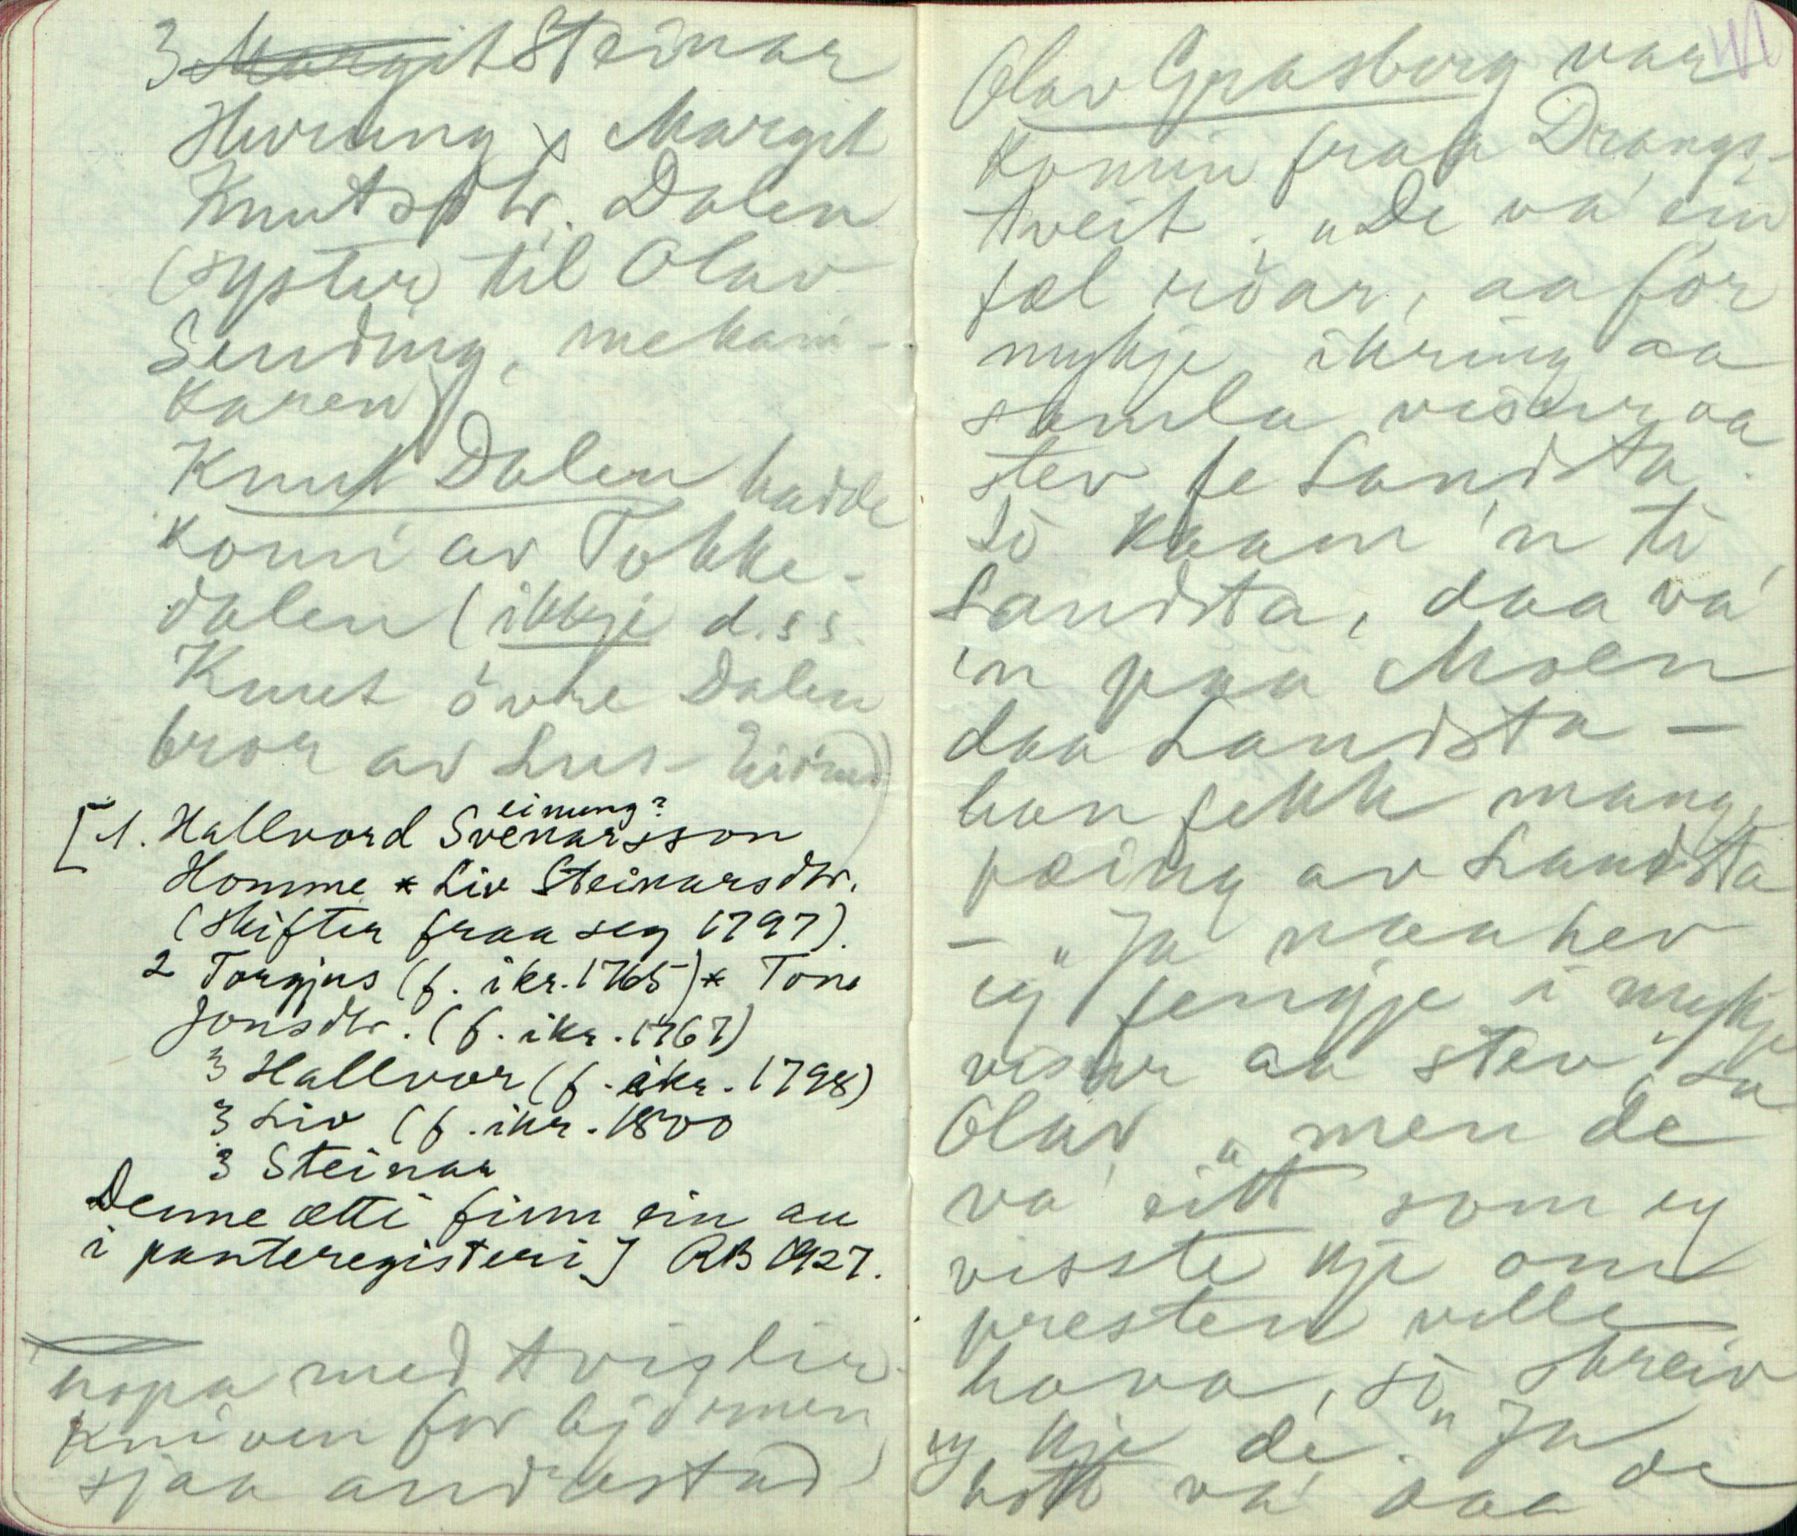 3 Margit Steinar
Hvrung x Margit
Knutsdtr. Dalen
(syster til Olav
Sending, mekani-
karen)
Knut Dalen hadde
komi av Tokke-
dalen (ikkje d.s.s.
Knut övre Dalen
bror av Lus-Eivind)
einung?
[1. Hallvord Svenarsson
Homme * Liv Steinarsdtr.
(skifter fraa seg 1797).
2 Torgjus (f. ikr. 1765) * Tone
Jonsdtr. (f. ikr. 1767)
3 Hallvor (f. ikr. 1798)
3 Liv (f. ikr. 1800
3 Steinar
Denne ætti finn ein au
i panteregisteri] RB 1927.
hopa med tvislir-
kniven for bjørnen
sjaa andrestad)
Olav Grasberg var
komin fraa Drangs-
tveit. "De va' ein
fæl riar, aa for
mykje ikring aa
samla visur aa
stev fe Landsta.
So kaam 'n ti
Landsta, daa va'
'n paa Moen
daa Landsta –
han fekk mange
pæing av Landsta
– "Ja naa hev
eg fengje i mykje
visur aa stev", sa
Olav, "men de
va' eitt som eg
visste kje om
presten ville
hava, so skreiv
eg kje de." "Ja de
hott va' daa